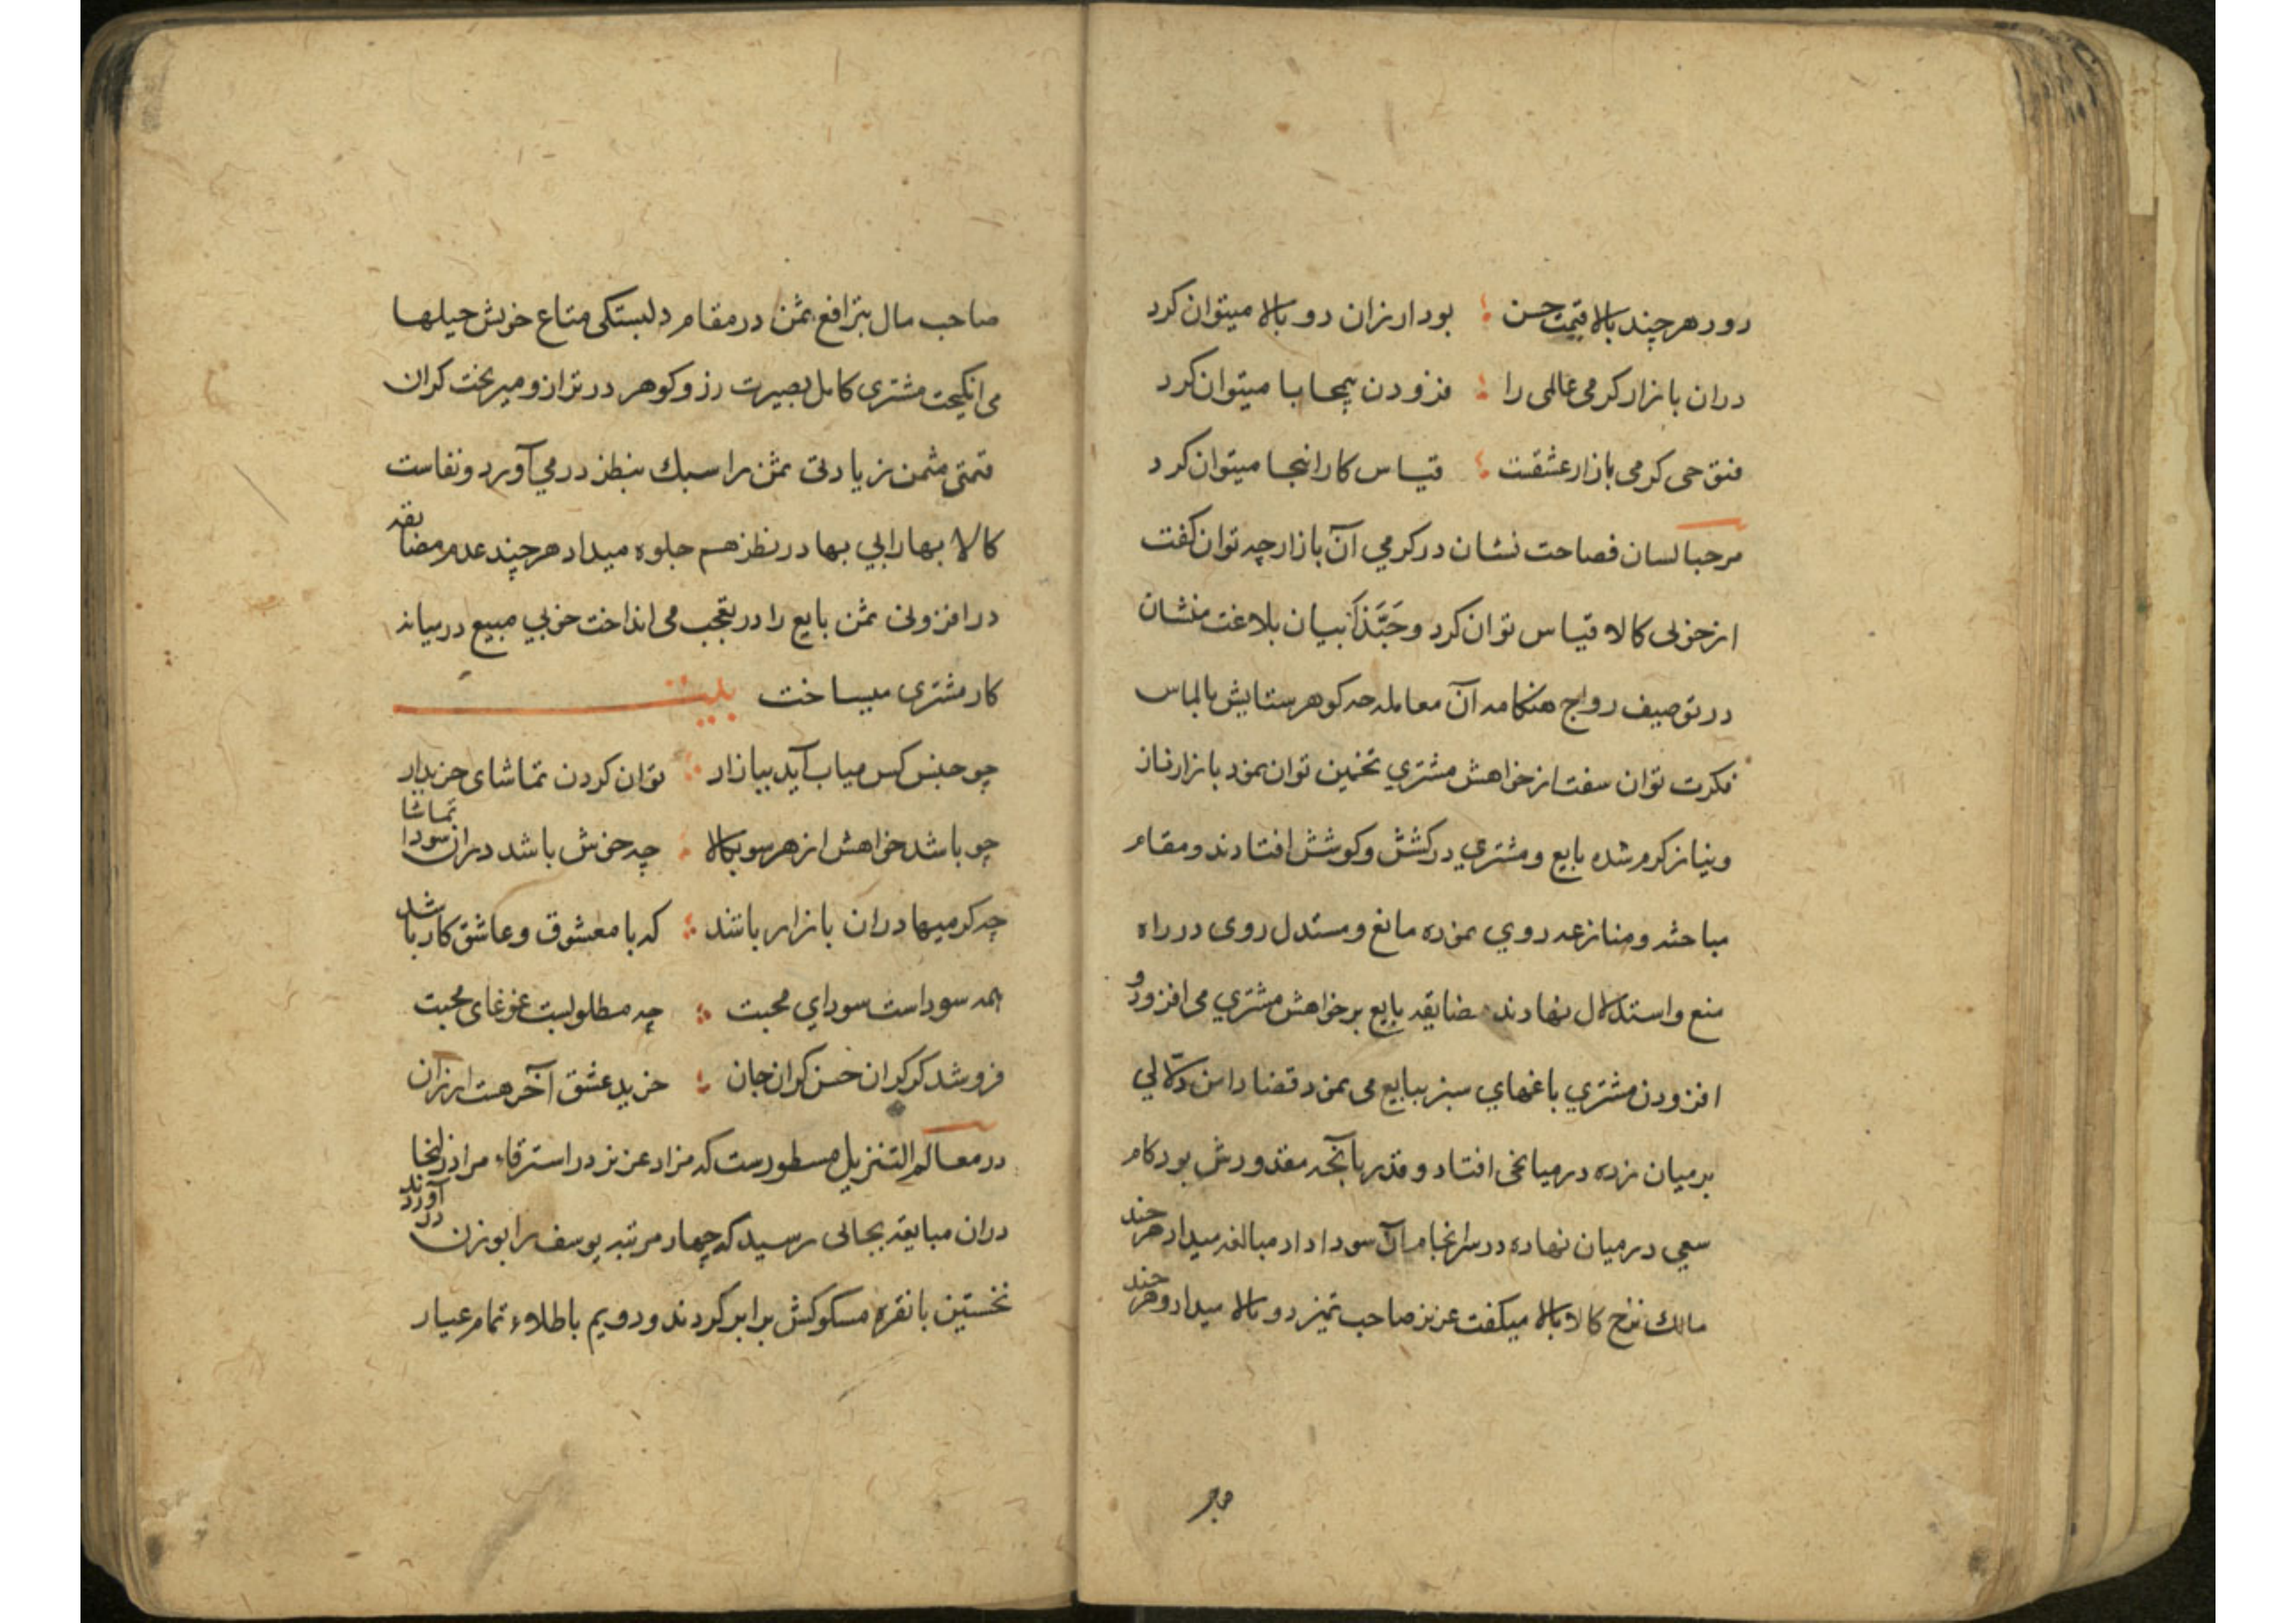 رود هرچند بالا قیمت حسن بود ارزان دو بالا میتوان کرد
دران بازار کرمی عالمی را فزودن بیمحابا میتوان کرد
فتوحی کرمی بازار عشقت قیاس کار اینجا میتوان کرد
مرحبا لسان فصاحت نشان در کرمي آن بازار چه توان کفت
از خوبی کالا قیاس توان کرد و حَبَّذَا بیان بلاغت منشان
در توصیف رواج هنکامه آن معامله چه کوهر ستایش بالماس
فکرت توان سفت از خواهش مشتري تخمین توان نمود بازار ناز
و نیاز کرم شده بایع و مشتري در کشش و کوشش افتادند و مقام
مباحثه و منازعه روي نموده مانع و مستدل روی در راه
منع و استدلال نهادند مضایقه بایع بر خواهش مشتري می افزود و
افزودن مشتري باغهاي سبز ببایع می نمود قضا دامن دلّالي
بر میان زده در میانجی افتاد و قدر بآنچه مقدورش بود کام
سعي در میان نهاده در سرانجام آن سودا داد مبالغه میداد هرچند
مالك نرخ کالا بالا میکفت عزیز صاحب تمیز دو بالا میداد و هرچند
صاحب مال بترافع ثمن در مقام دلبستکی متاع خویش حیلها
می انکیخت مشتری کامل بصیرت زر و کوهر در ترازو میریخت کران
قیمتی مثمن زیادتی ثمن را سبك بنظر در مي آورد و نفاست
کالا بها را بي بها در نظر هم جلوه میداد هرچند عدم مضایقه
در افزونی ثمن بایع را در تعجب می انداخت خوبي مبیع در میانه
کار مشتری میساخت بیت
چو جنس کس میاب آید ببازار توان کردن تماشای خریدار
چو باشد خواهش از هر سو بکالا چه خوش باشد دران سودا تماشا
چه کرمیها دران بازار باشد که با معشوق و عاشق کار باشد
همه سوداست سوداي محبت چه مطلوبست غوغای محبت
فروشد کر کران حسن کران جان خرید عشق آخر هست ارزان
در معالم التنزیل مسطورست که مزاد عزیز در استرقاء مراد زلیخا
دران مبایقه بجائی رسید که چهار مرتبه یوسف را بوزن در آوردند
نخستین با نقره مسکوکش برابر کردند و دویم با طلاء تمام عیار